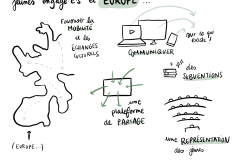 jeunes engagé·e·s et EUROPE ...
FOURNIR la
MOBILITÉ
et les
ÉCHANGES
CULTURELS
COMMUNIQUER
sur ce qui
existe !
des
SUBVENTIONS
une
plateforme
de PARTAGE
une REPRÉSENTATION
des jeunes
(EUROPE...)